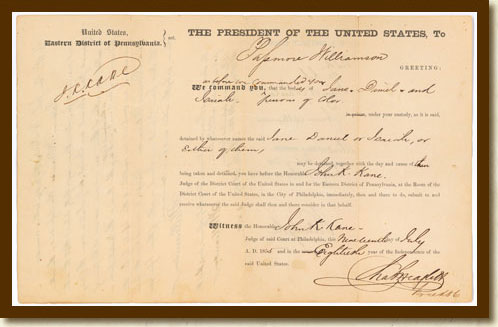 United States, } sct.
Eastern District of Pennsylvania.
J. K. KANE
THE PRESIDENT OF THE UNITED STATES, To
Passmore Williamson
GREETING:
as before we commanded you
We command you, that the bodies of Jane, Daniel, and
Isaiah persons of Color
under your custody, as it is said,
detained by whatsoever names the said Jane Daniel or Isaiah, or
Either of them,
may be detained, together with the day and cause of their
being taken and detained, you have before the Honorable John K. Kane,
Judge of the District Court of the United States in and for the Eastern District of Pennsylvania, at the Room of the
District Court of the United States, in the City of Philadelphia, immediately, then and there to do, submit to and
receive whatsoever the said Judge shall then and there consider in that behalf.
Witness the Honorable John K Kane
Judge of said Court at Philadelphia, this Nineteenth of July
A. D. 1855 and in the Eightieth year of the Independence of the
said United States.